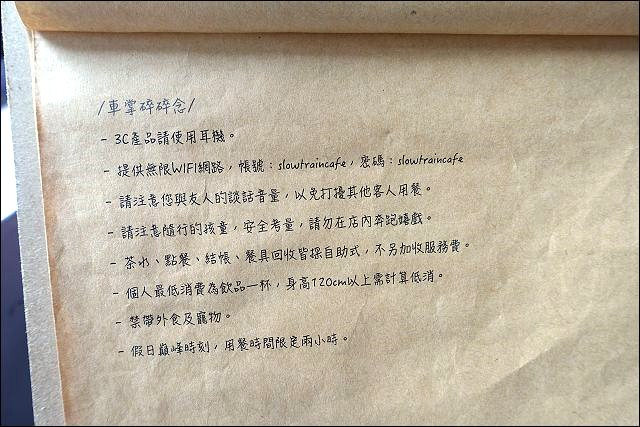 /車掌碎碎念/
- 3C產品請使用耳機。
- 提供無限WIFI網路，帳號：slowtraincafe，密碼：slowtraincafe
- 請注意您與友人的談話音量，以免打擾其他客人用餐。
- 請注意隨行的孩童，安全考量，請勿在店內奔跑嬉戲。
- 茶水、點餐、結帳、餐具回收皆採自助式，不另加收服務費。
- 個人最低消費為飲品一杯，身高120cm以上需計算低消。
- 禁帶外食及寵物。
- 假日巔峰時刻，用餐時間限定兩小時。